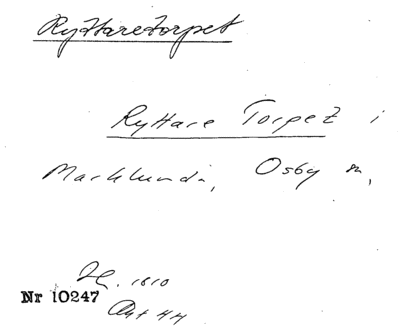 Ryttaretorpet
Ryttare Torpet i
Marklunda, Osby sn,
1810
Nr 10247
Akt 44